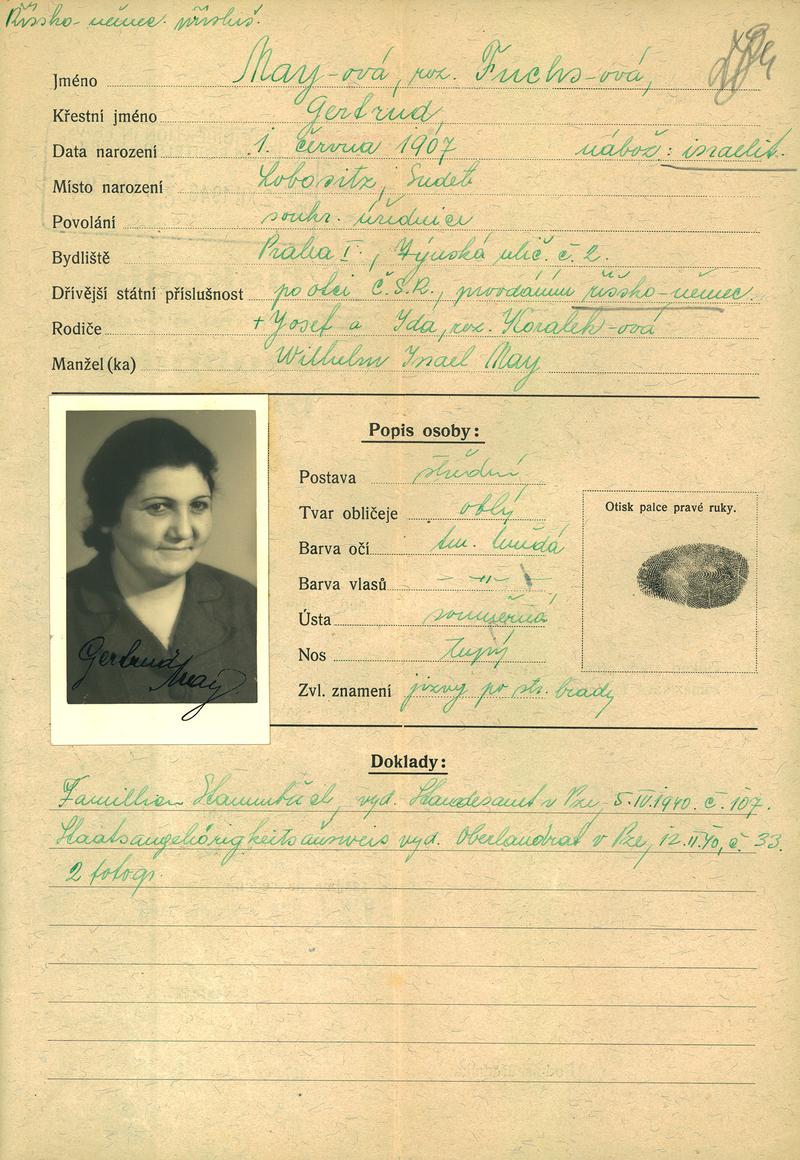 Říšsko-němec. přísluš.
Jméno May-ová, roz. Fuchs-ová,
Křestní jméno Gertrud,
Data narození 1. června 1907 nábož: israelit.
Místo narození Lobositz, Sudet
Povolání soukr. úřednice
Bydliště Praha I., Týnská ulič. č. 2.
Dřívější státní příslušnost po otci Č.S.R., provdáním říšsko-němec.
Rodiče + Josef a Ida, roz. Koralek-ová
Manžel (ka) Wilhelm Israel May
Popis osoby:
Postava střední
Tvar obličeje oblý
Barva očí tm. hnědá
Barva vlasů - " -
Ústa souměrná
Nos tupý
Zvl. znamení jizvy po str. brady
Otisk palce pravé ruky.
Gertrud May
Doklady:
Famillien Stammbuch, vyd. Standesamt v Pze, 5.IV.1940. č. 107.
Staatsangehörigkeitsausweis vyd. Oberlandrat v Pze, 12.II.40, č. 33.
2 fotogr.